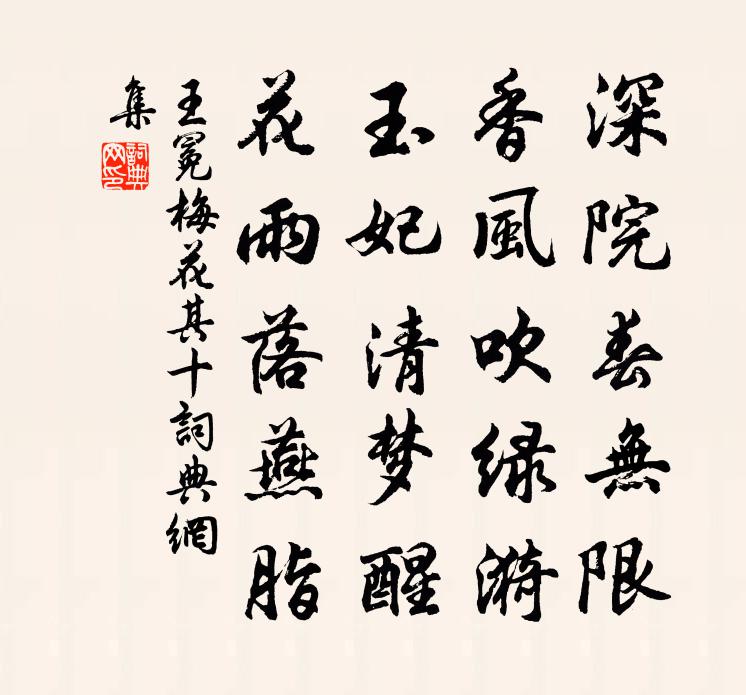 深院春無限
香風吹绿漪
玉妃清梦醒
花雨落燕脂
王冕梅花其十詞典網
集
詞典
网印